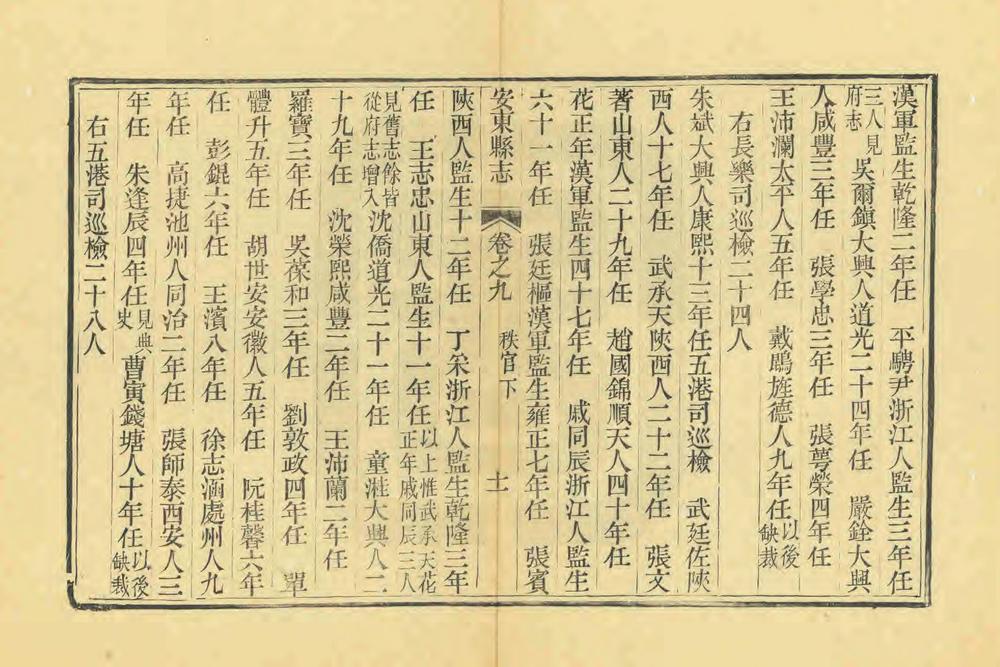 漢軍監生乾隆二年任 平騁尹浙江人監生三年任
三人見府志 吳爾鎮大興人道光二十四年任 嚴銓大興
人咸豐三年任 張學忠三年任 張萼榮四年任
王沛瀾太平人五年任 戴鵰旌德人九年任以後缺裁
右長樂司巡檢二十四人
朱斌大興人康熙十三年任五港司巡檢 武廷佐陝
西人十七年任 武承天陝西人二十二年任 張文
著山東人二十九年任 趙國錦順天人四十年任
花正年漢軍監生四十七年任 戚同辰浙江人監生
六十一年任 張廷樞漢軍監生雍正七年任 張賓
安東縣志 卷之九 秩官下 十一
陝西人監生十二年任 丁采浙江人監生乾隆三年
任 王志忠山東人監生十一年任以上惟武承天花正年戚同辰三人
見舊志餘皆從府志增入 沈僑道光二十一年任 童漼大興人二
十九年任 沈榮熙咸豐二年任 王沛蘭二年任
羅寶三年任 吳葆和三年任 劉敦政四年任 單
體升五年任 胡世安安徽人五年任 阮桂馨六年
任 彭錕六年任 王濱八年任 徐志涵處州人九
年任 高捷池州人同治二年任 張師泰西安人三
年任 朱逢辰四年任見典史 曹寅錢塘人十年任以後缺裁
右五港司巡檢二十八人